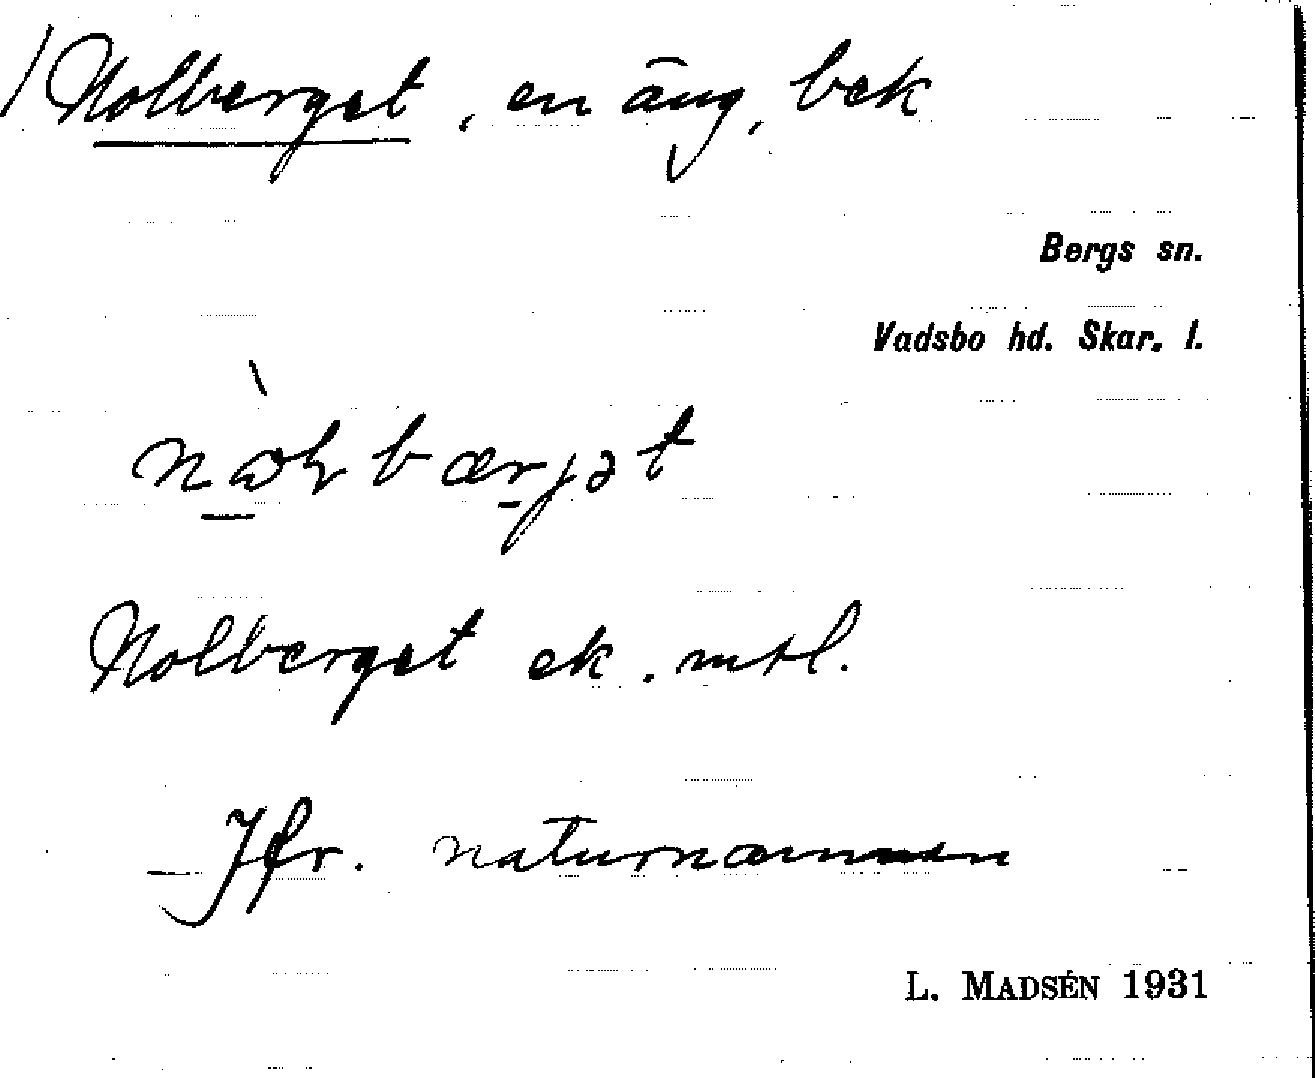 / Nolberget, en äng, bek
Bergs sn.
Vadsbo hd. Skar. l.
Nolberget ek. mtl.
Jfr. naturnamnen
L. MADSÉN 1931